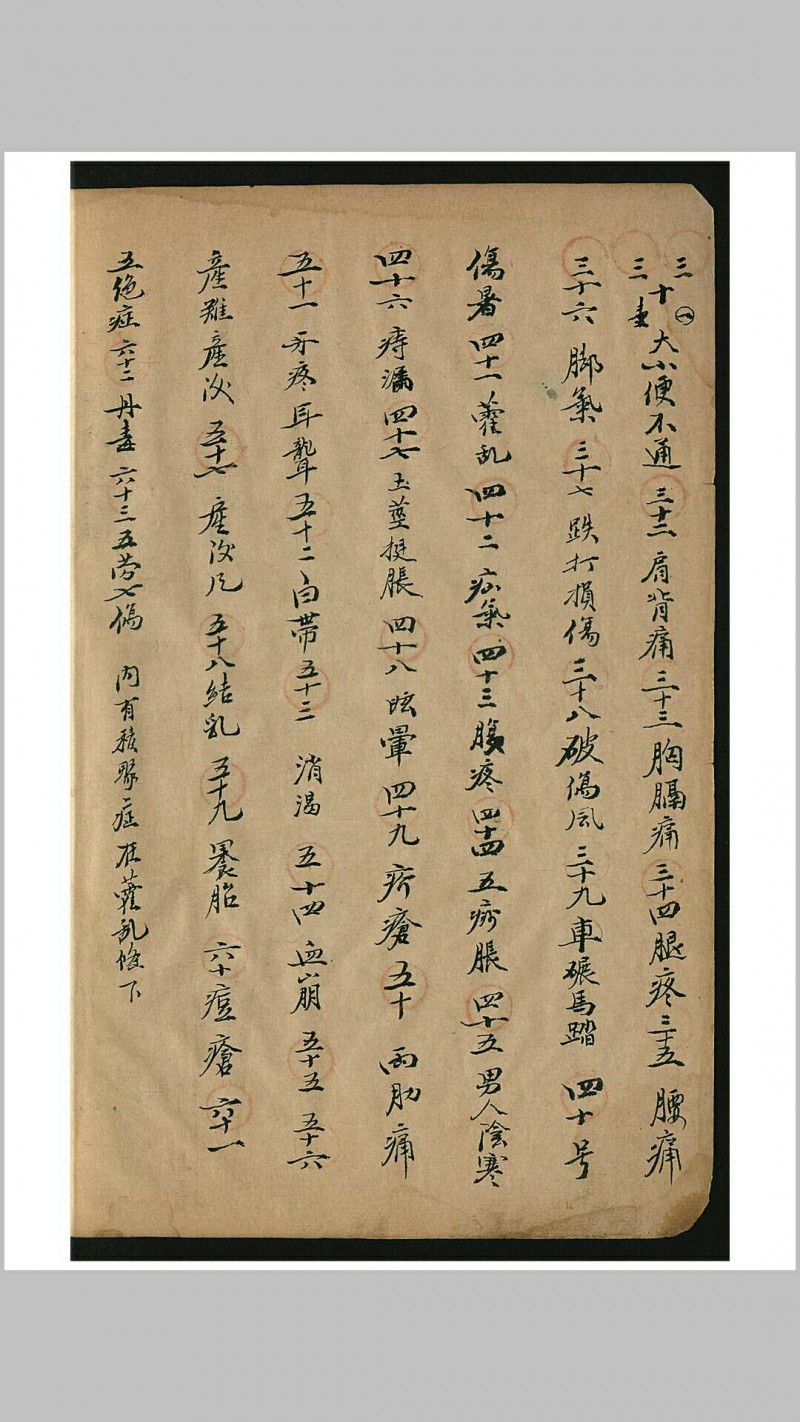 三十一 大小便不通 三十二 肩背痛 三十三 胸膈痛 三十四 腿疼 三十五 腰痛
三十六 脚氣 三十七 跌打損傷 三十八 破傷風 三十九 車碾馬踏 四十号
傷暑 四十一 藿乱 四十二 疝氣 四十三 腹疼 四十四 五痨脹 四十五 男人陰寒
四十六 痔漏 四十七 玉莖挺脹 四十八 眩暈 四十九 疥瘡 五十 兩肋痛
五十一 牙疼耳聾 五十二 白帶 五十三 消渴 五十四 血崩 五十五 五十六
產難產後 五十七 產後風 五十八 結乳 五十九 胎 六十 痘瘡 六十一
五絶症 六十二 丹毒 六十三 五劳七傷 内有積聚症在藿乱條下